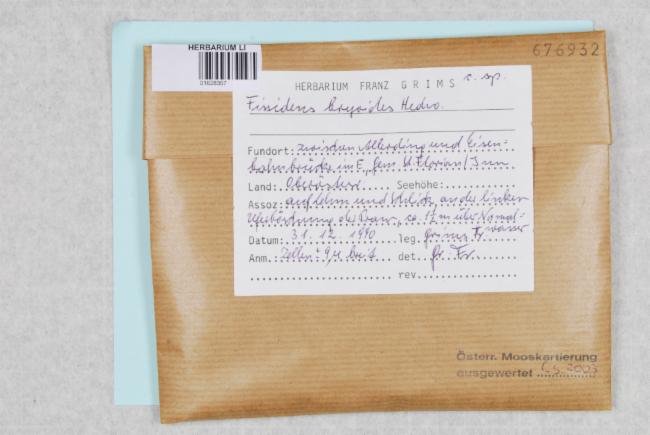 HERBARIUM LI
01628367
676932
HERBARIUM FRANZ GRIMS c. sp.
Fissidens bryoides Hedw.
Fundort: zwischen Allerding und Eisen-
bahnbrücke in E, Gem. St. Florian/Inn
Land: Oberösterr. Seehöhe:
Assoz: auf Lehm und Schlick an der linken
der Pram, ca. 17 m über Normal-
wasser
Datum: 31. 12. 1990 leg. Grims Fr.
Anm. Zellen 9 µ breit det. Gr. Fr.
rev.
Österr. Mooskartierung
ausgewertet 2003